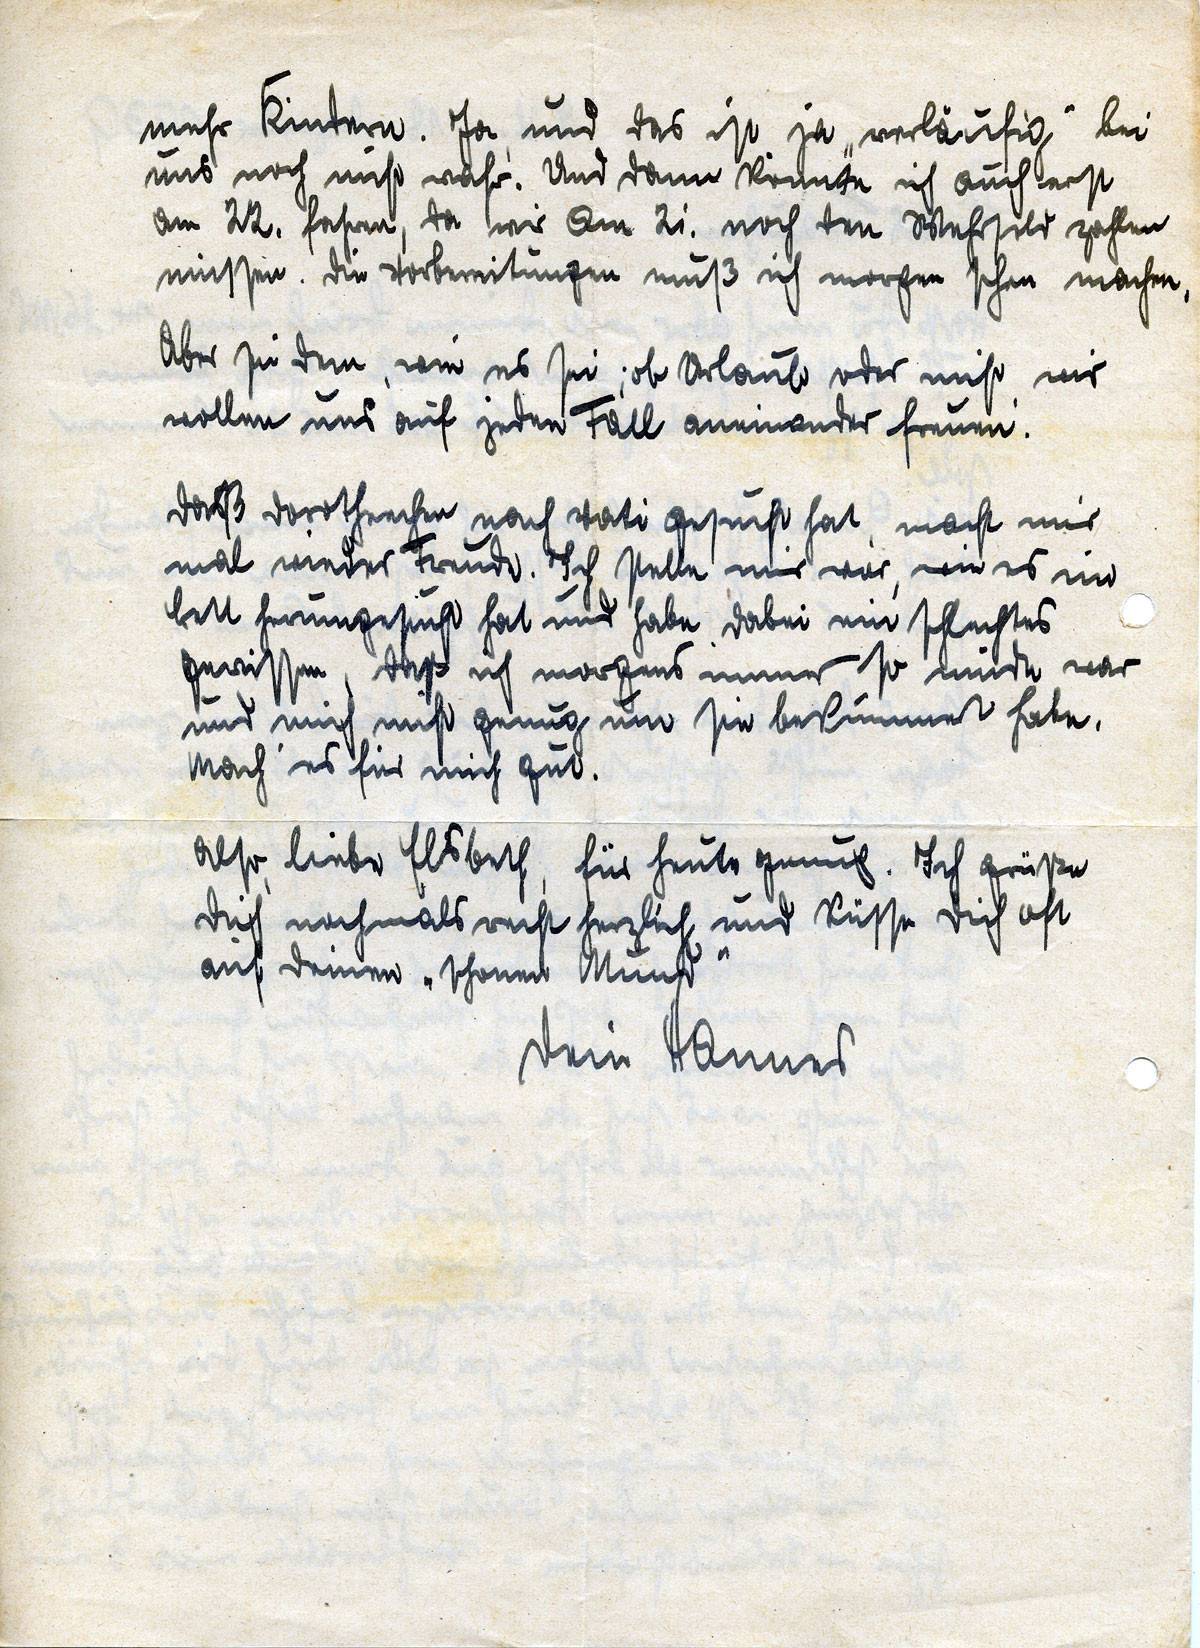 mehr Kindern. Ja, und das ist ja „verläufig" bei
uns noch nicht wahr. Und dann könnte ich auch erst
am 22. fahren, da wir am 21. noch den Wehrsold zahlen
müssen. Die Vorbereitungen muß ich morgen schon machen.
Aber sei dem, wie es sei, ob Urlaub oder nicht, wir
wollen uns auf jeden Fall aneinander freuen.
Daß Dorotheechen nach Vati gesucht hat, macht mir
mal wieder Freude. Ich stelle mir vor, wie es im
Bett herumgesucht hat und habe dabei ein schlechtes
Gewissen, daß ich morgens immer so müde war
und mich nicht genug um sie bekümmert habe.
Mach' es für mich gut.
Also, liebe Elsbeth, für heute genug. Ich grüße
Dich nochmals recht herzlich und küsse Dich oft
auf Deinen „schönen Mund"
Dein Hannes